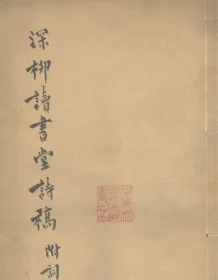 深柳讀書堂詩稿附詞